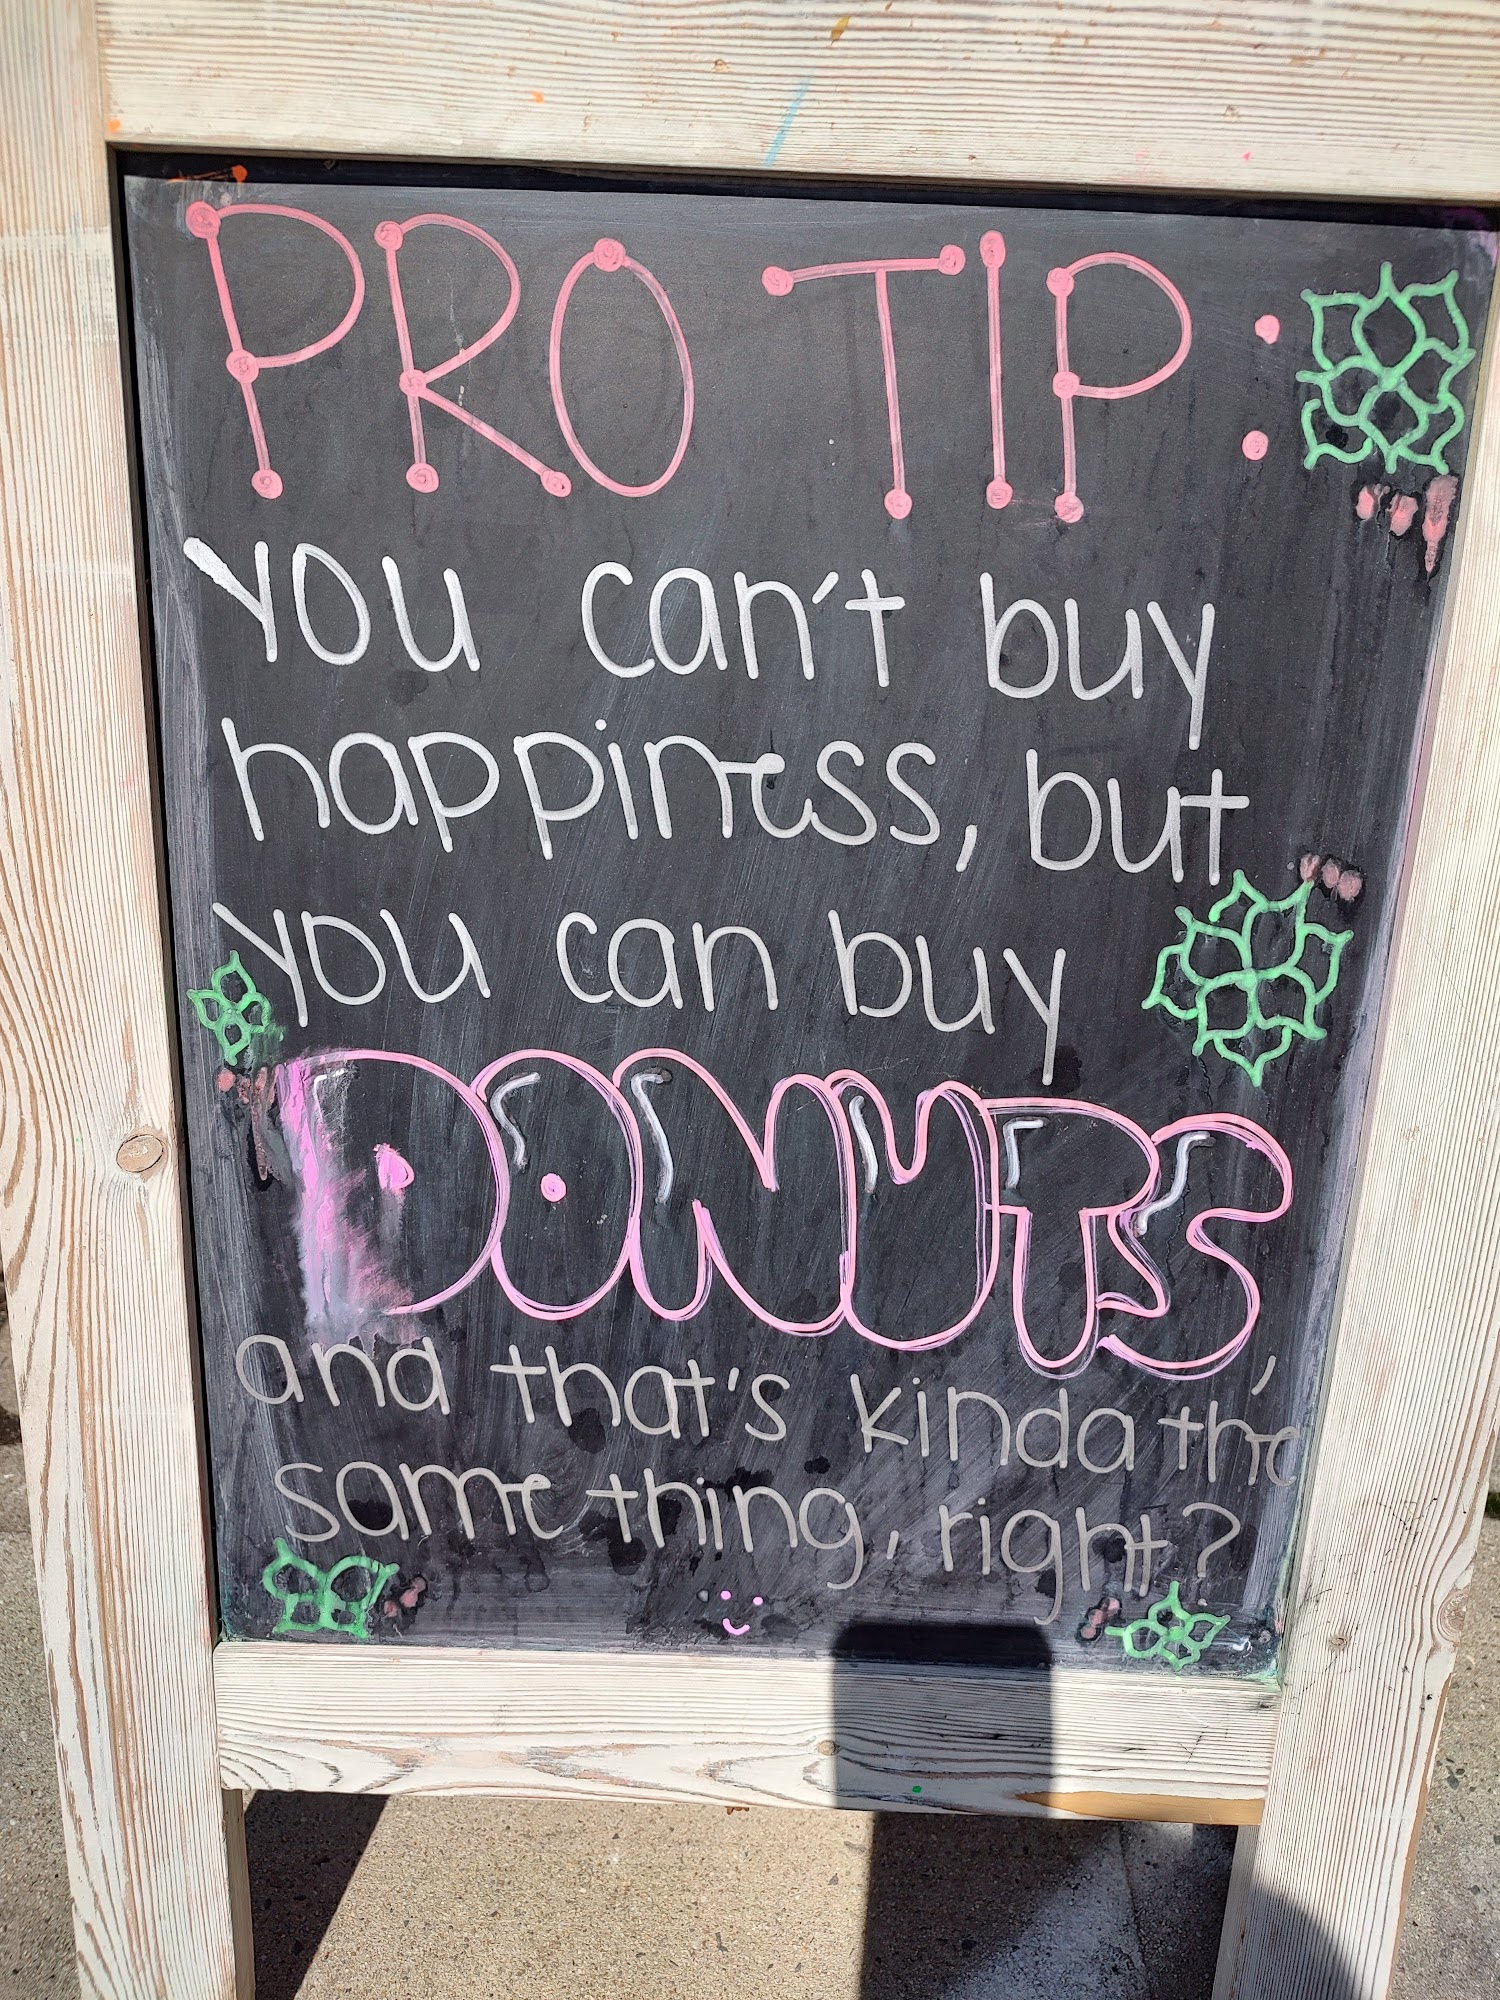 PRO TIP:
you can't buy
happiness, but
you can buy
DONUTS,
and that's kinda the
same thing, right?